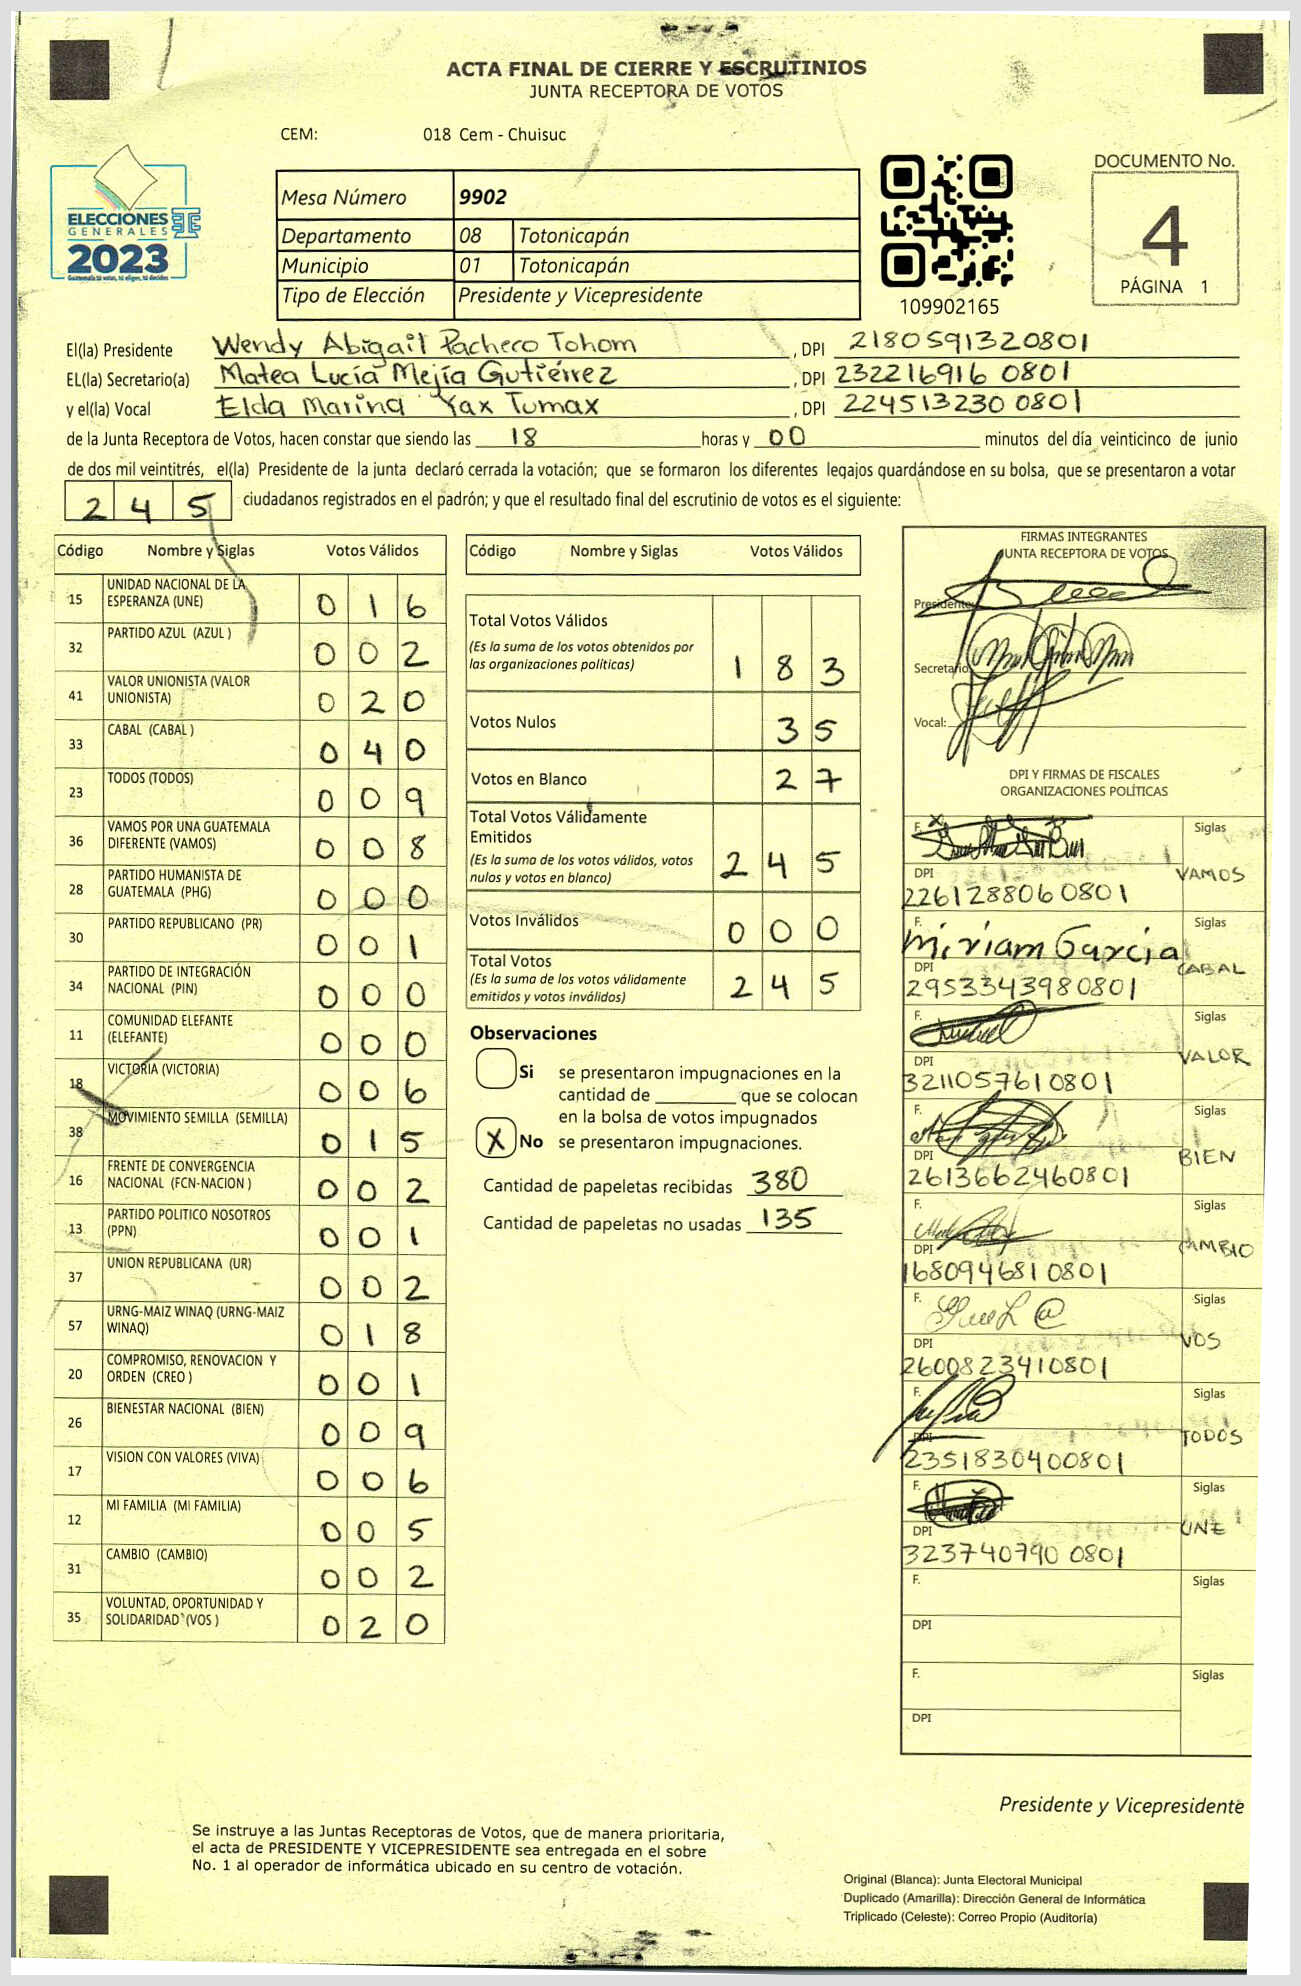 ACTA FINAL DE CIERRE Y ESCRUTINIOS
JUNTA RECEPTORA DE VOTOS
CEM: 018 Cem - Chuisuc
ELECCIONES
GENERALES
2023
Mesa Número 9902
Departamento 08 Totonicapán
Municipio 01 Totonicapán
Tipo de Elección Presidente y Vicepresidente
109902165
DOCUMENTO No.
4
PÁGINA 1
El(la) Presidente Wendy Abigail Pacheco Tohom , DPI 2180591320801
EL(la) Secretario(a) Matea Lucía Mejía Gutiérrez , DPI 232216916 0801
y el(la) Vocal Elda Marina Yax Tumax , DPI 224513230 0801
de la Junta Receptora de Votos, hacen constar que siendo las 18 horas y 00 minutos del día veinticinco de junio
de dos mil veintitrés, el(la) Presidente de la junta declaró cerrada la votación; que se formaron los diferentes legajos guardándose en su bolsa, que se presentaron a votar
245 ciudadanos registrados en el padrón; y que el resultado final del escrutinio de votos es el siguiente:
Código Nombre y Siglas Votos Válidos
15 UNIDAD NACIONAL DE LA ESPERANZA (UNE) 016
32 PARTIDO AZUL (AZUL ) 002
41 VALOR UNIONISTA (VALOR UNIONISTA) 020
33 CABAL (CABAL ) 040
23 TODOS (TODOS) 009
36 VAMOS POR UNA GUATEMALA DIFERENTE (VAMOS) 008
28 PARTIDO HUMANISTA DE GUATEMALA (PHG) 000
30 PARTIDO REPUBLICANO (PR) 001
34 PARTIDO DE INTEGRACIÓN NACIONAL (PIN) 000
11 COMUNIDAD ELEFANTE (ELEFANTE) 000
18 VICTORIA (VICTORIA) 006
38 MOVIMIENTO SEMILLA (SEMILLA) 015
16 FRENTE DE CONVERGENCIA NACIONAL (FCN-NACION ) 002
13 PARTIDO POLITICO NOSOTROS (PPN) 001
37 UNION REPUBLICANA (UR) 002
57 URNG-MAIZ WINAQ (URNG-MAIZ WINAQ) 018
20 COMPROMISO, RENOVACION Y ORDEN (CREO ) 001
26 BIENESTAR NACIONAL (BIEN) 009
17 VISION CON VALORES (VIVA) 006
12 MI FAMILIA (MI FAMILIA) 005
31 CAMBIO (CAMBIO) 002
35 VOLUNTAD, OPORTUNIDAD Y SOLIDARIDAD (VOS ) 020
Código Nombre y Siglas Votos Válidos
Total Votos Válidos
(Es la suma de los votos obtenidos por
las organizaciones políticas) 183
Votos Nulos 35
Votos en Blanco 27
Total Votos Válidamente
Emitidos
(Es la suma de los votos válidos, votos
nulos y votos en blanco) 245
Votos Inválidos 000
Total Votos
(Es la suma de los votos válidamente
emitidos y votos inválidos) 245
Observaciones
Si se presentaron impugnaciones en la
cantidad de ________ que se colocan
en la bolsa de votos impugnados
X No se presentaron impugnaciones.
Cantidad de papeletas recibidas 380
Cantidad de papeletas no usadas 135
FIRMAS INTEGRANTES
JUNTA RECEPTORA DE VOTOS
Presidente:
Secretario
Vocal:
DPI Y FIRMAS DE FISCALES
ORGANIZACIONES POLÍTICAS
F. Siglas
DPI VAMOS
226128806 0801
F. Miriam Garcia Siglas
DPI CABAL
2953343980801
F. Siglas
DPI VALOR
3211057610801
F. Siglas
DPI BIEN
2613662460801
F. Siglas
DPI CAMBIO
1680946810801
F. Siglas
DPI VOS
2600823410801
F. Siglas
DPI TODOS
2351830400801
F. Siglas
DPI UNE
323740790 0801
F. Siglas
DPI
F. Siglas
DPI
Presidente y Vicepresidente
Se instruye a las Juntas Receptoras de Votos, que de manera prioritaria,
el acta de PRESIDENTE Y VICEPRESIDENTE sea entregada en el sobre
No. 1 al operador de informática ubicado en su centro de votación.
Original (Blanca): Junta Electoral Municipal
Duplicado (Amarilla): Dirección General de Informática
Triplicado (Celeste): Correo Propio (Auditoría)